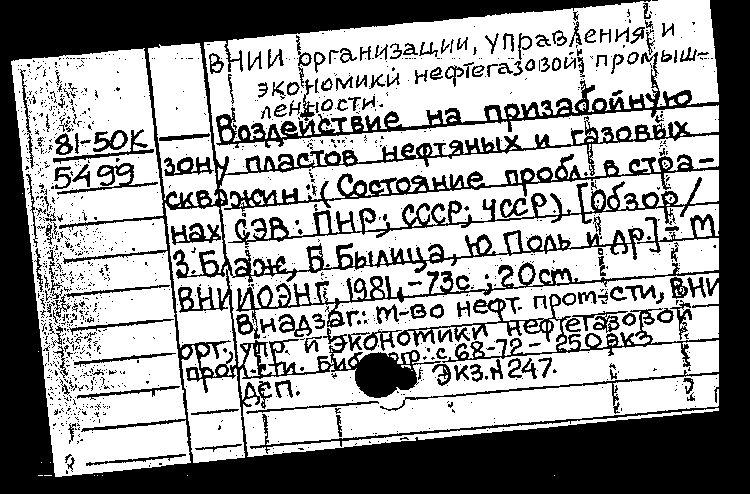 ВНИИ организации, управления и
экономики нефтегазовой промыш-
ленности.
81-50К
5499
Воздействие на призабойную
зону пластов нефтяных и газовых
скважин. (Состояние пробл. в стра-
нах СЭВ: ПНР; СССР; ЧССР). [Обзор/
З. Блаж, Б. Былица, Ю. Поль и др.]. - М.
ВНИИОЭНГ, 1981. - 73с.; 20ст.
В надзаг.: М-во нефт. пром-сти, ВНИИ
орг., упр. и экономики нефтегазовой
пром-сти. Библиогр.: с. 68-72 - 250экз.
Экз. N 247.
ДСП.